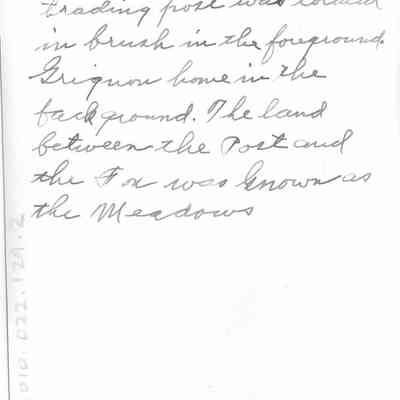 trading post was located
in brush in the foreground.
Grignon home in the
background. The land
between the Post and
the Fox was known as
the Meadows
010.022.129.2